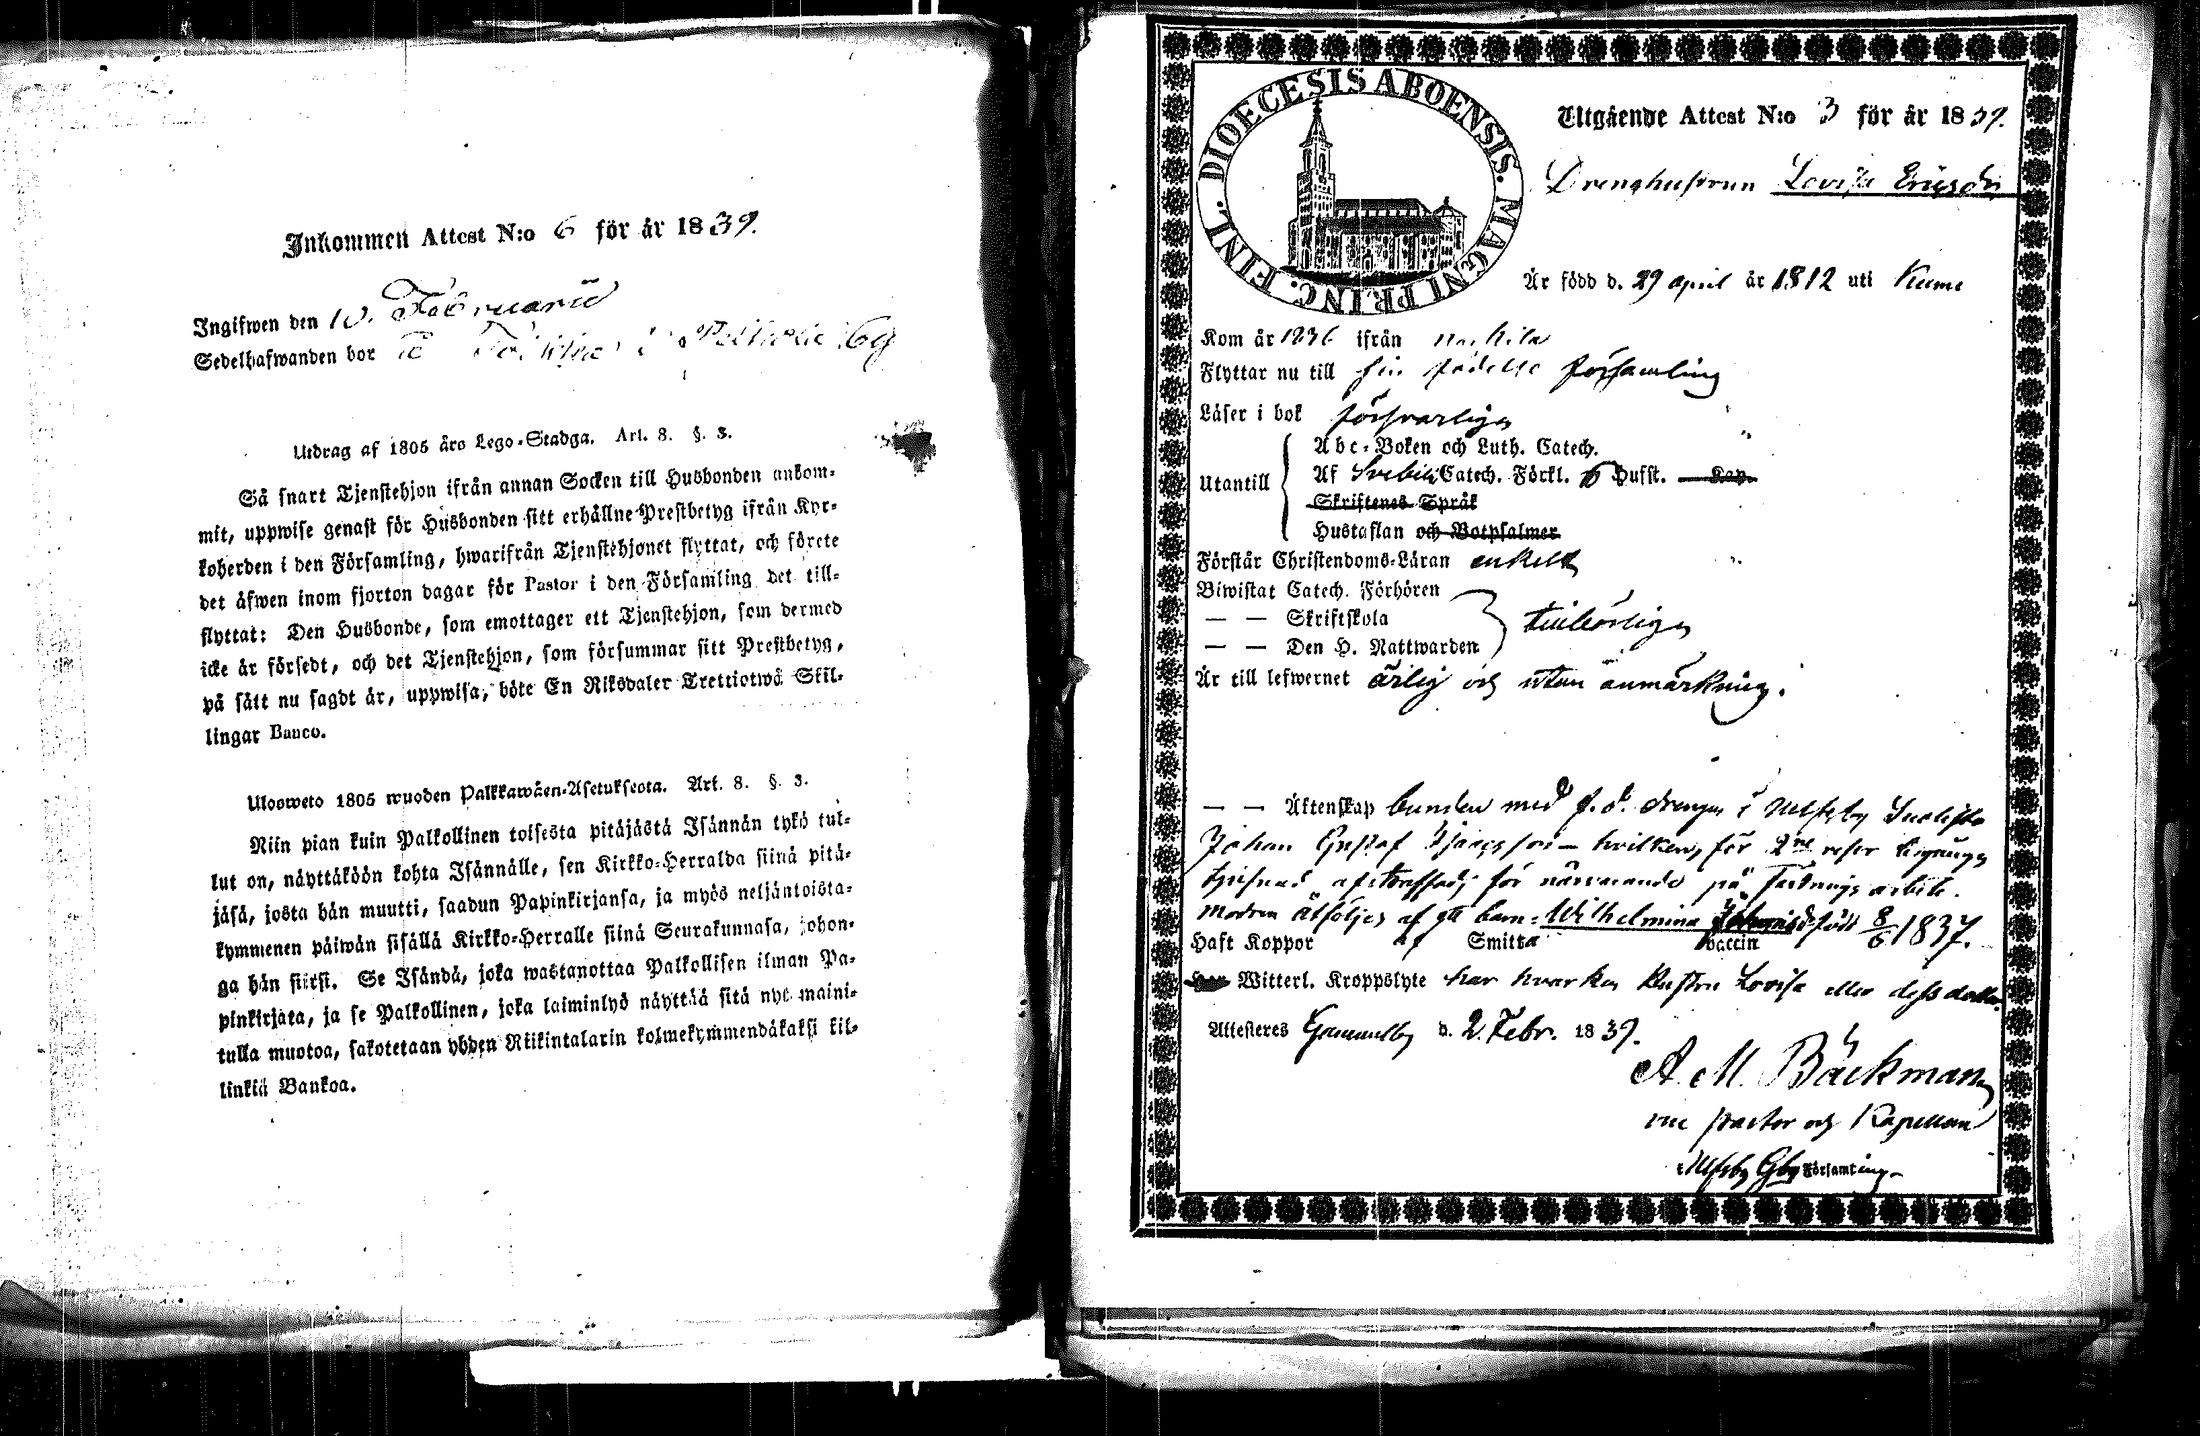 Inkommen Attest N:o 6 för år 1839.
Ingifwen den 10. Februarii
Sedelhafwanden bor
Utdrag af 1805 års Lego-Stadga. Art. 8. §. 3.
Så snart Tjenstehjon ifrån annan Socken till Husbonden ankom-
mit, uppwise genast för Husbonden sitt erhållne Prestbetyg ifrån Kyr-
koherden i den Församling, hwarifrån Tjenstehjonet flyttat, och förete
det äfwen inom fjorton dagar för Pastor i den Församling det till-
flyttat: Den Husbonde, som emottager ett Tjenstehjon, som dermed
icke är försedt, och det Tjenstehjon, som försummar sitt Prestbetyg,
på sätt nu sagdt är, uppwisa, böte En Riksdaler Trettiotwå Skil-
lingar Banco.
Ulosweto 1805 wuoden Palkkawäen-Asetuksesta. Art. 8. §. 3.
Niin pian kuin Palkollinen toisesta pitäjästä Isännän tykö tul-
lut on, näyttäköön kohta Isännälle, sen Kirkko-Herralda siinä pitä-
jäsä, josta hän muutti, saadun Papinkirjansa, ja myös neljäntoista-
kymmenen päiwän sisällä Kirkko-Herralle siinä Seurakunnasa, johon-
ga hän siirsi. Se Isändä, joka wastanottaa Palkollisen ilman Pa-
pinkirjata, ja se Palkollinen, joka laiminlyö näyttää sitä nyt maini-
tulla muotoa, sakotetaan yhden Riikintalarin kolmekymmendäkaksi kil-
linkiä Bankoa.
DIOECESIS ABOENSIS. MAGNI PRINC. FINL.
Utgående Attest N:o 3 för år 1839.
Drenghustrun Lovisa Ericsdr
Är född d. 29 april år 1812 uti Kumo
Kom år 1836 ifrån Nackila
Flyttar nu till sin födelse församling
Läser i bok försvarligen
Abc-Boken och Luth. Catech.
Utantill Af Svebilii Catech. Förkl. 6 Hufst. Kap.
Skriftenes Språk
Hustaflan och Botpsalmer
Förstår Christendoms-Läran enkelt
Biwistat Catech. Förhören
— — Skriftskola tillbörligen
— — Den H. Nattwarden
Är till lefwernet ärlig och utan anmärkning.
— — Äktenskap bunden med f. d. drengen i Ulfsby
Johan Gustaf hvilken för 2ne resor begången
tjufnad för närvarande på arbete.
Modren åtföljes af ett barn: Wilhelmina född 8/6 1837.
Haft Koppor af Smitta Vaccin
Witterl. Kroppslyte har hvarken hustru Lovisa eller dess dotter.
Attesteres Gammelby d. 2. Febr. 1839.
A. M. Bäckman
vic pastor och Kapellan
Ulfsby Gby Församling